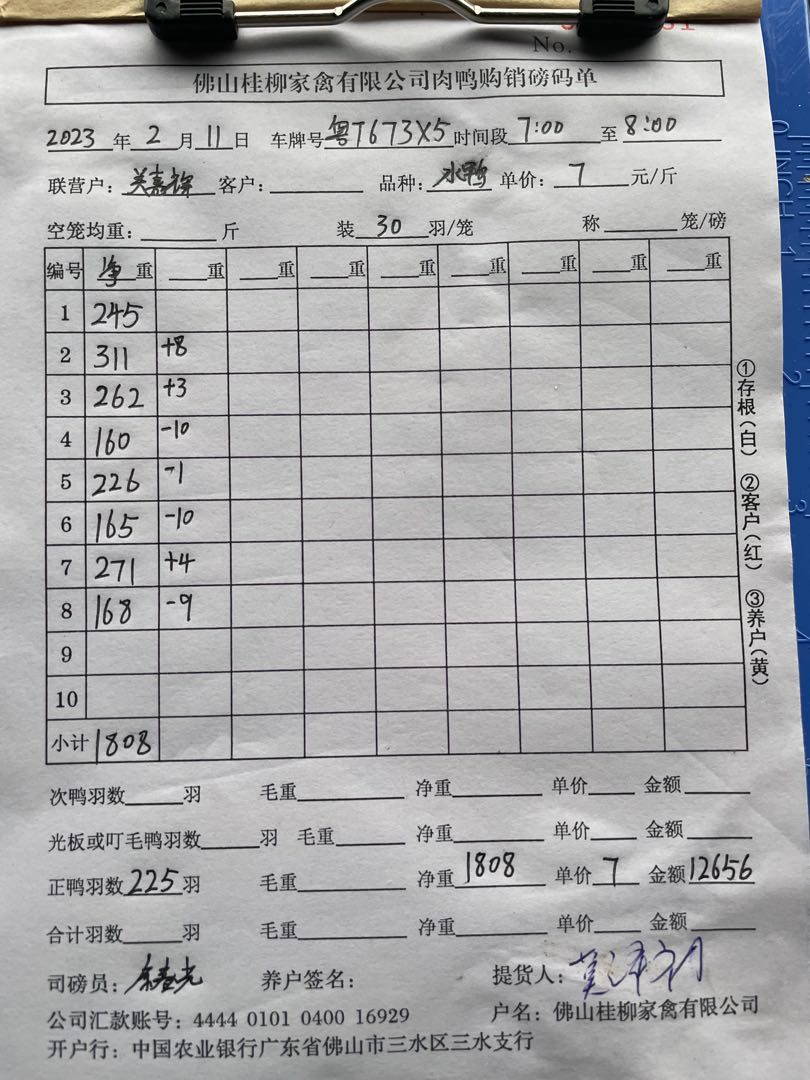 No.
佛山桂柳家禽有限公司肉鸭购销磅码单
2023 年 2 月 11 日 车牌号 粤T673X5 时间段 7:00 至 8:00
联营户: 关嘉锦 客户: 品种: 水鸭 单价: 7 元/斤
空笼均重: 斤 装 30 羽/笼 称 笼/磅
编号 净重 重 重 重 重 重 重 重 重
1 245
2 311 +8
3 262 +3
4 160 -10
5 226 -1
6 165 -10
7 271 +4
8 168 -9
9
10
小计 1808
①存根(白) ②客户(红) ③养户(黄)
次鸭羽数 羽 毛重 净重 单价 金额
光板或叮毛鸭羽数 羽 毛重 净重 单价 金额
正鸭羽数 225 羽 毛重 净重 1808 单价 7 金额 12656
合计羽数 羽 毛重 净重 单价 金额
司磅员: 养户签名: 提货人:
公司汇款账号: 4444 0101 0400 16929 户名: 佛山桂柳家禽有限公司
开户行: 中国农业银行广东省佛山市三水区三水支行
INCH 1
2
3